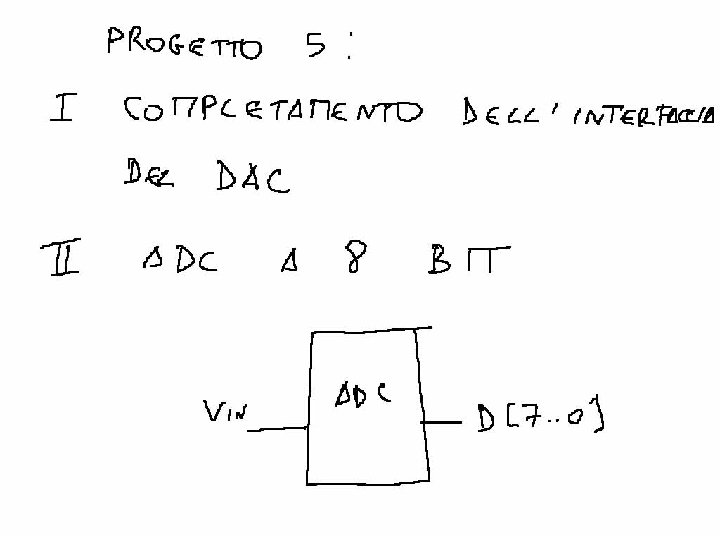 PROGETTO 5:
I COMPLETAMENTO DELL'INTERFACCIA
DEL DAC
II ADC A 8 BIT
ADC
VIN D[7..0]